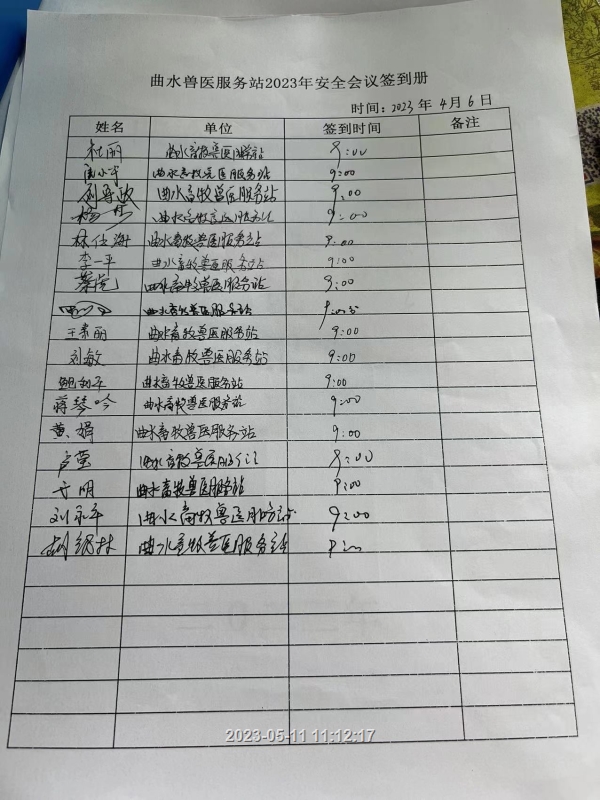 曲水兽医服务站2023年安全会议签到册
时间：2023年4月6日
姓名 单位 签到时间 备注
杜丽 曲水畜牧兽医服务站 9:00
曲水畜牧兽医服务站 9:00
曲水畜牧兽医服务站 9:00
曲水畜牧兽医服务站 9:00
林仕海 曲水畜牧兽医服务站 9:00
李一平 曲水畜牧兽医服务站 9:00
曲水畜牧兽医服务站 9:00
曲水畜牧兽医服务站
王素丽 曲水畜牧兽医服务站 9:00
刘敏 曲水畜牧兽医服务站 9:00
曲水畜牧兽医服务站 9:00
蒋琴吟 曲水畜牧兽医服务站 9:00
黄娟 曲水畜牧兽医服务站 9:00
卢莹 曲水畜牧兽医服务站 9:00
曲水畜牧兽医服务站 9:00
刘永平 曲水畜牧兽医服务站 9:00
曲水畜牧兽医服务站
2023-05-11 11:12:17